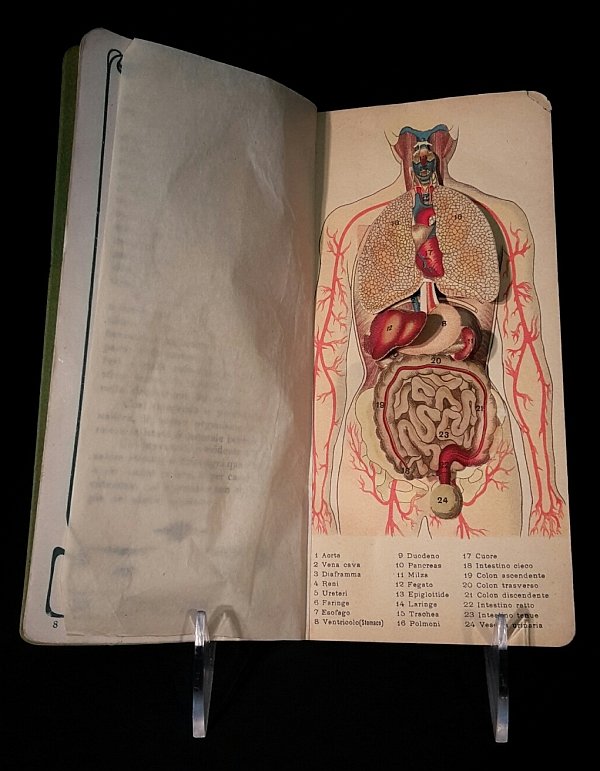 1 Aorta
2 Vena cava
3 Diaframma
4 Reni
5 Ureteri
6 Faringe
7 Esofago
8 Ventricolo(Stomaco)
9 Duodeno
10 Pancreas
11 Milza
12 Fegato
13 Epiglottide
14 Laringe
15 Trachea
16 Polmoni
17 Cuore
18 Intestino cieco
19 Colon ascendente
20 Colon trasverso
21 Colon discendente
22 Intestino retto
23 Intestino tenue
24 Vescica urinaria
16
16
17
8
12
11
20
19
21
23
18
24
8